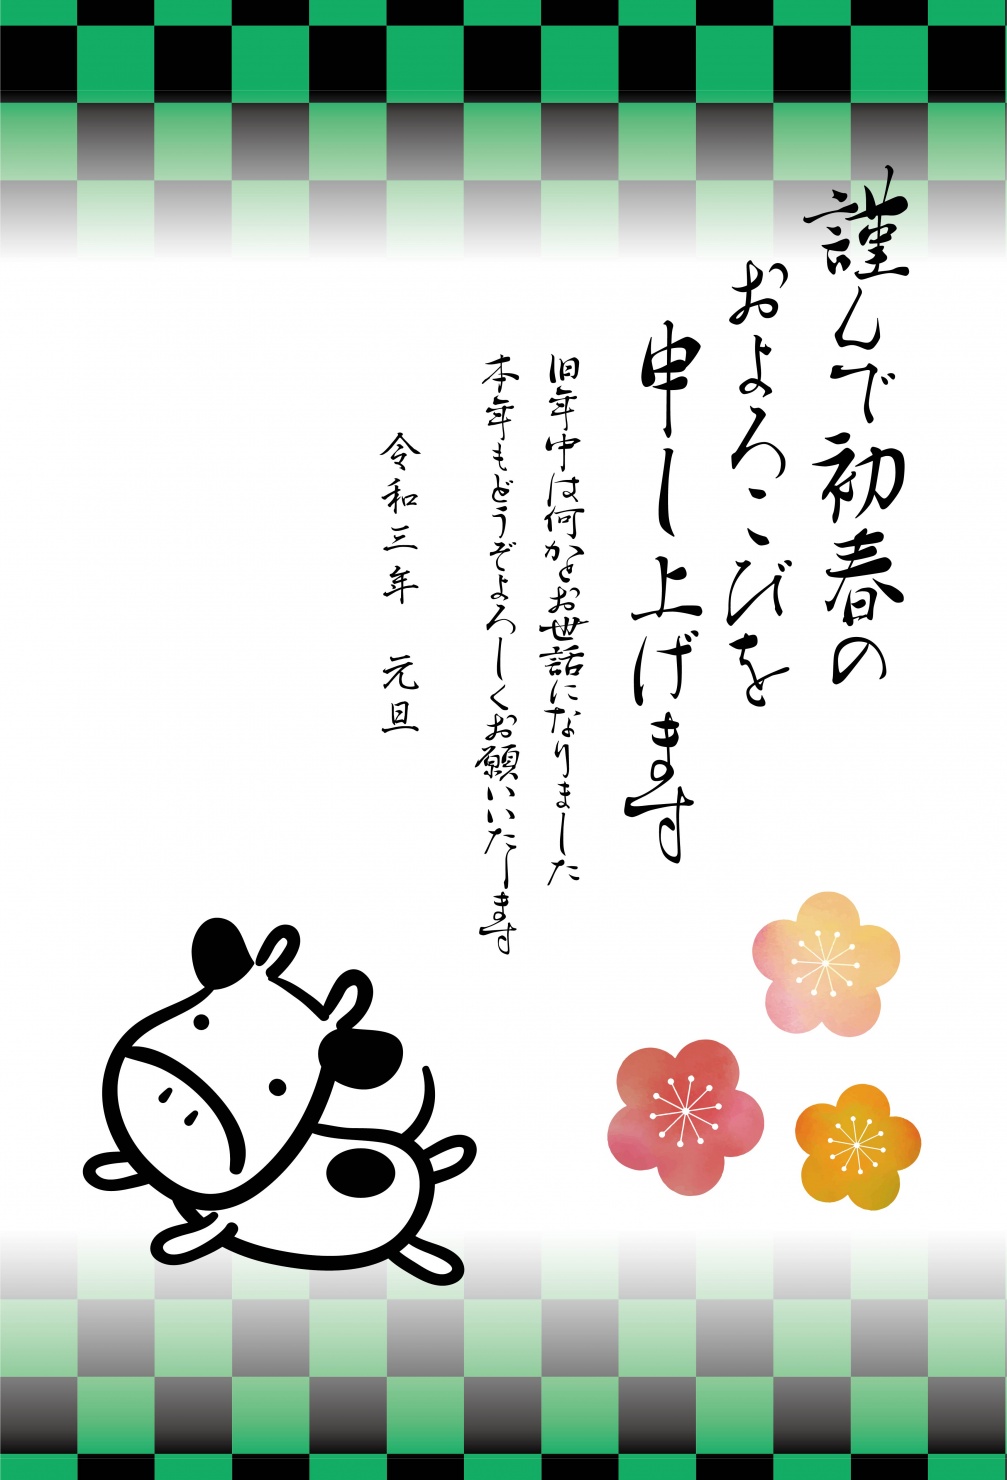 謹んで初春の
およろこびを
申し上げます
旧年中は何かとお世話になりました
本年もどうぞよろしくお願いいたします
令和三年　元旦